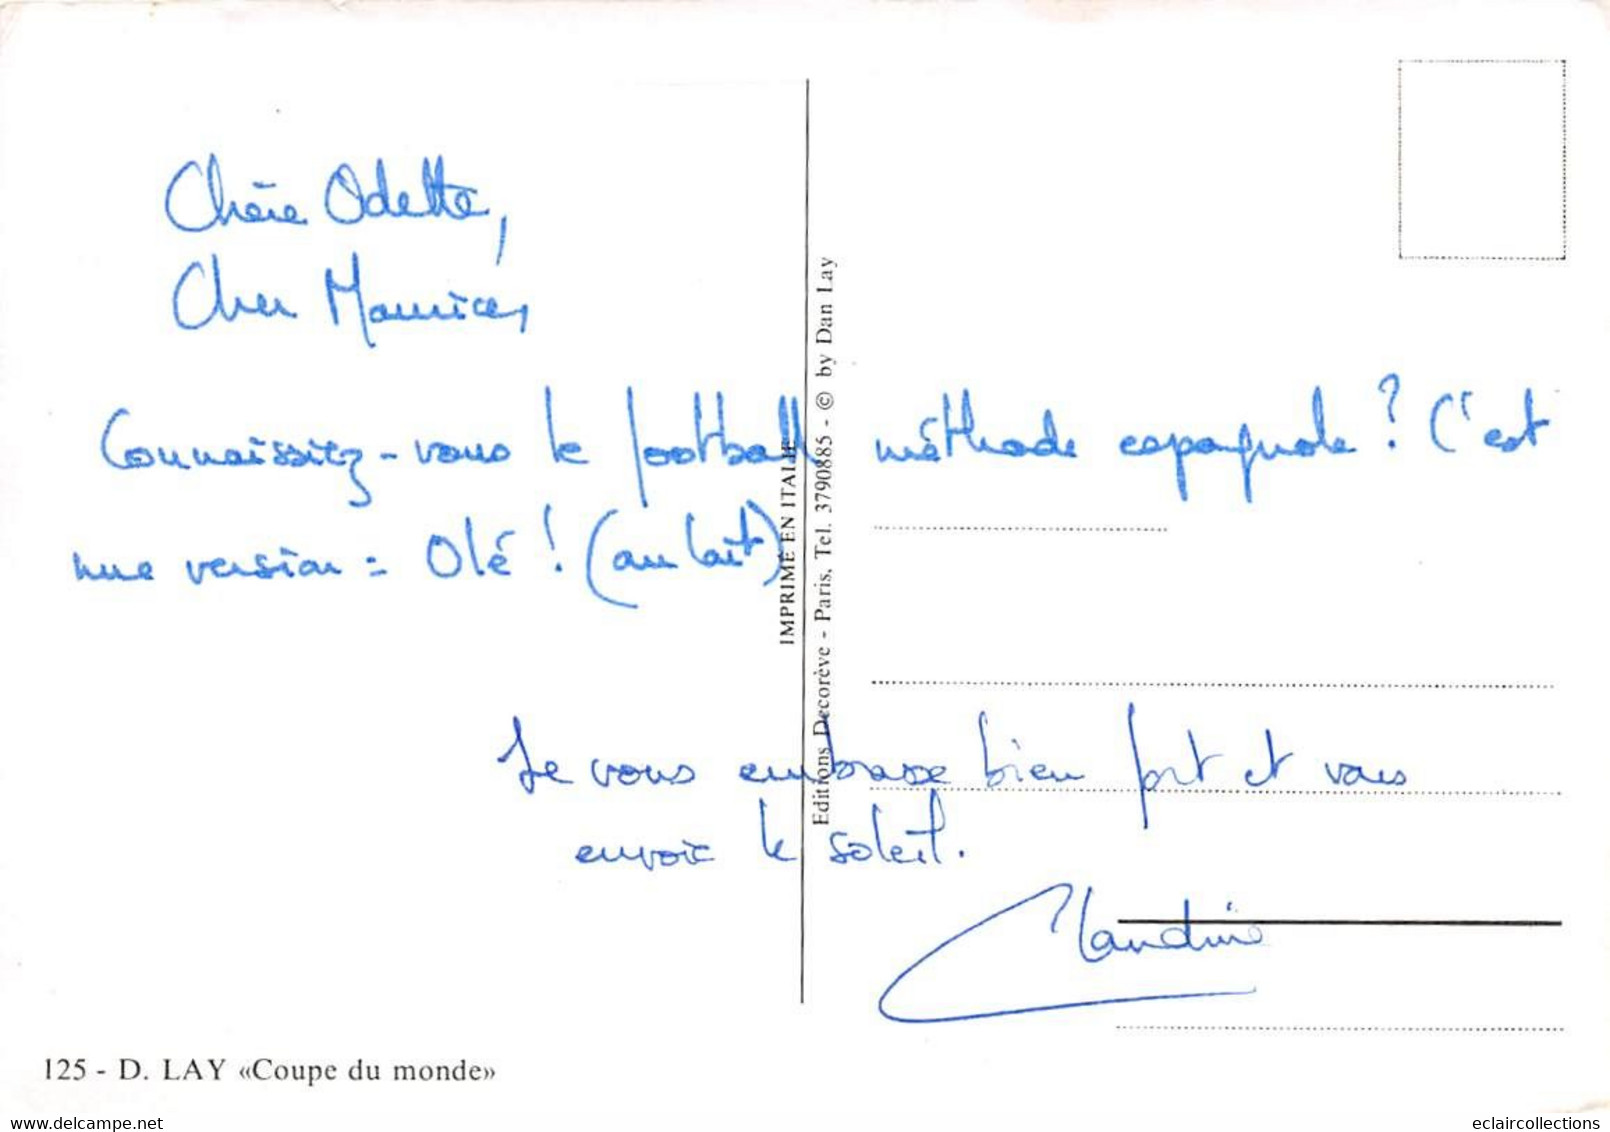 Chère Odette,
Cher Maurice,
Connaissiez-vous le football méthode espagnole ? C'est
une version = Olé ! (au lait)
Je vous embrasse bien fort et vous
envoie le soleil.
Claudine
IMPRIMÉ EN ITALIE
Editions Decorève - Paris, Tel. 3790885 - © by Dan Lay
125 - D. LAY «Coupe du monde»
www.delcampe.net
eclaircollections